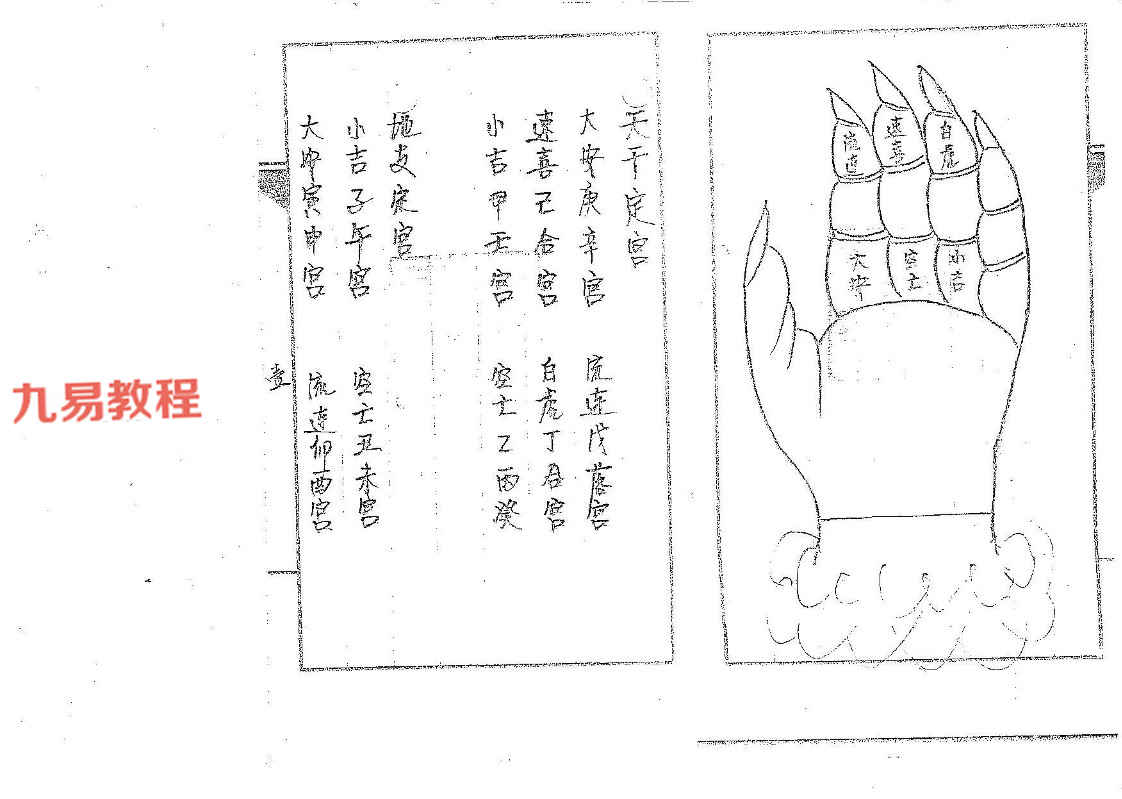 天干定宫
大安庚辛宫
流连戊落宫
速喜己合宫
白虎丁君宫
小吉甲壬宫
空亡乙丙癸
地支定宫
小吉子午宫
空亡丑未宫
大安寅申宫
流连卯酉宫
壹
流连
速喜
白虎
大安
空亡
小吉
九易教程